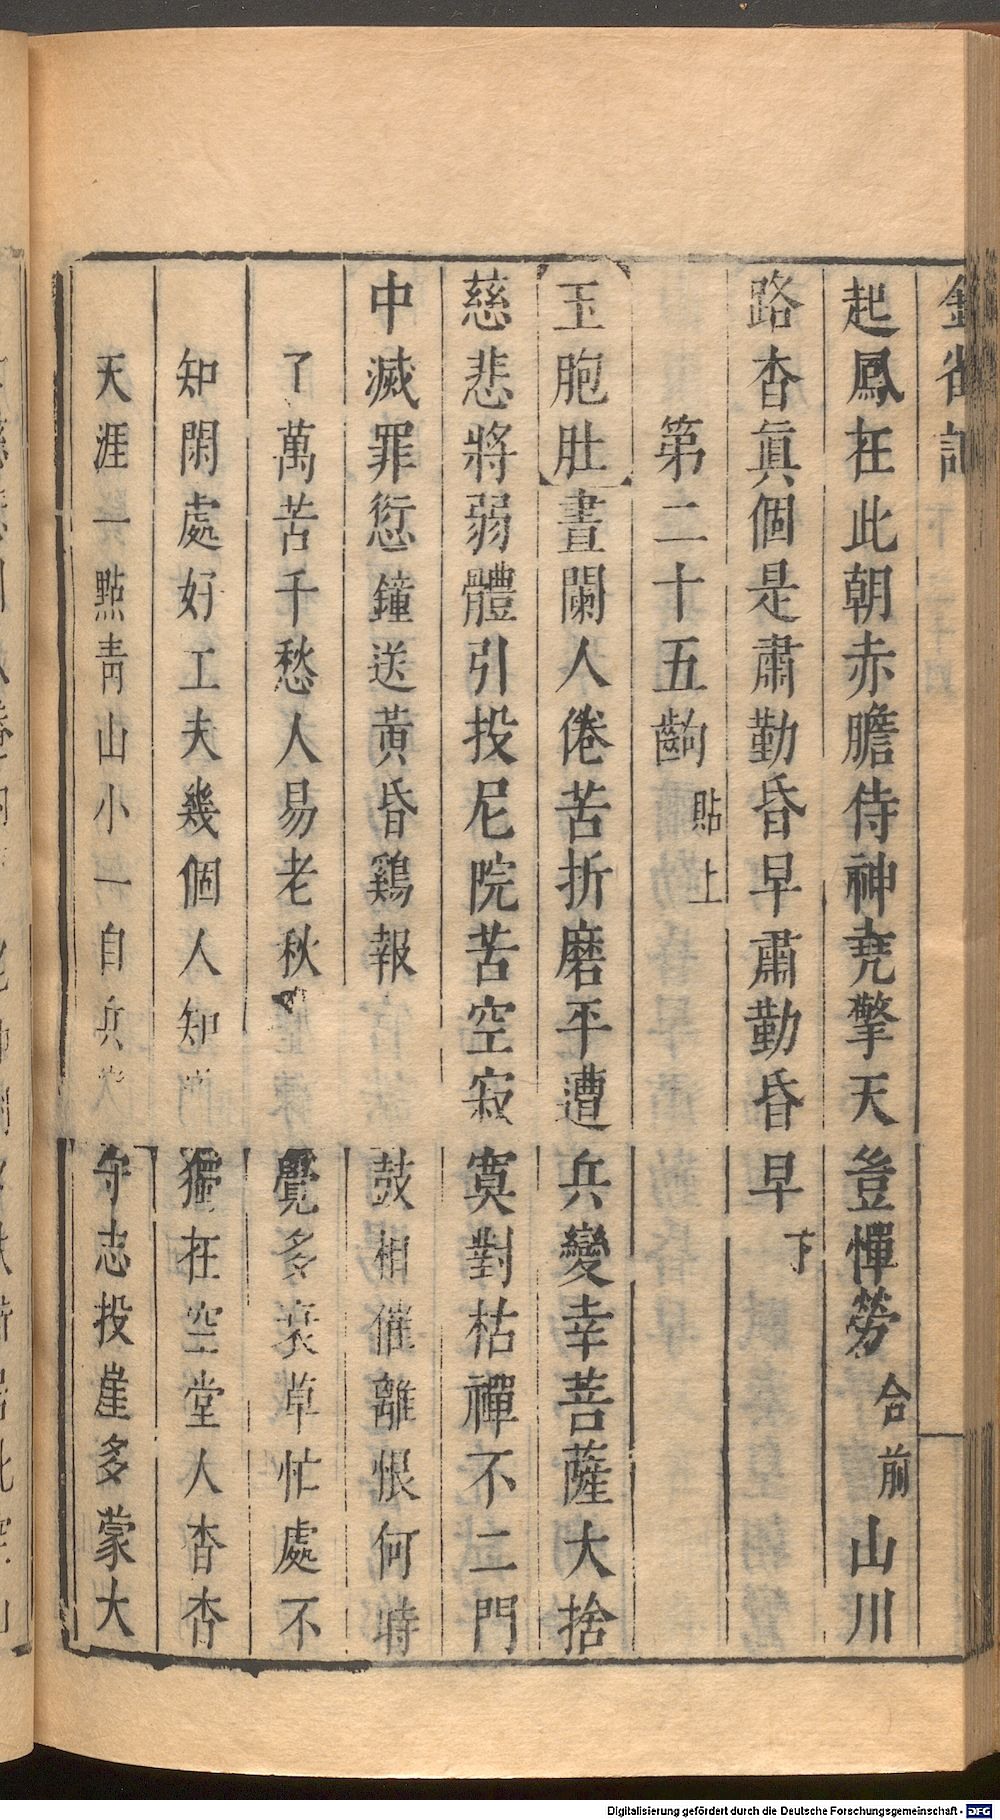 金雀記
起鳳在此朝赤膽侍神堯擎天豈憚勞合前山川
路杳眞個是肅勤昏早肅勤昏早下
第二十五齣貼上
玉胞肚晝闌人倦苦折磨平遭兵變幸菩薩大捨
慈悲將弱體引投尼院苦空寂寞對枯禪不二門
中滅罪愆鐘送黃昏鷄報鼓相催離恨何時
了萬苦千愁人易老秋覺多衰草忙處不
知閑處好工夫幾個人知獨在空堂人杳杳
天涯一點靑山小一自兵守志投崖多蒙大
Digitalisierung gefördert durch die Deutsche Forschungsgemeinschaft - DFG